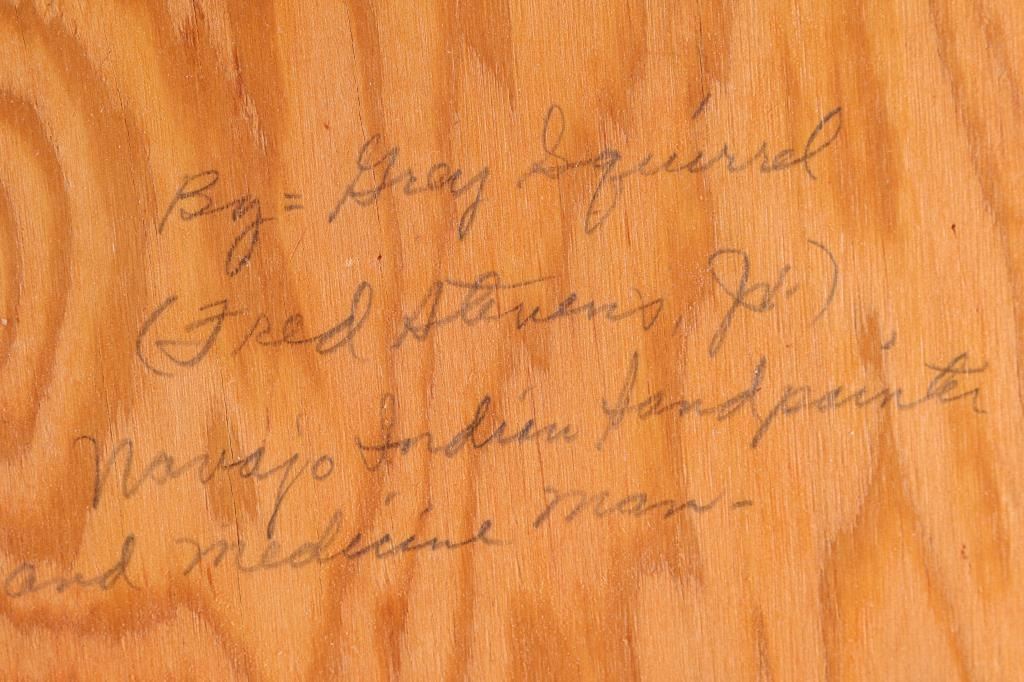 By= Grey Squirrel
(Fred Stevens, Jr.)
Navajo Indian Sandpainter
and medicine man-